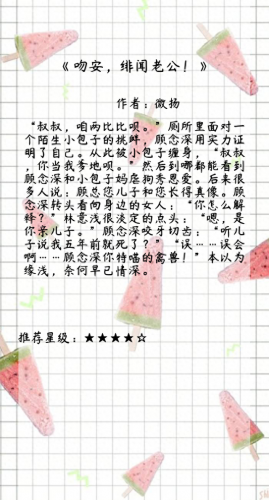 《吻安，绯闻老公！》
作者：微扬
“叔叔，咱两比比呗。”厕所里面对一
个陌生小包子的挑衅，顾念深用实力证
明了自己。从此被小包子缠身，“叔叔
，你当我爹地呗。”然后到哪都能看到
顾念深和小包子妈虐狗秀恩爱。后来很
多人说：顾总您儿子和您长得真像。顾
念深转头看向身边的女人：“你怎么解
释？”林意浅很淡定的点头：“嗯，是
你亲儿子。”顾念深咬牙切齿：“听儿
子说我五年前就死了？”“误……误会
啊……顾念深你特喵的禽兽！”本以为
缘浅，奈何早已情深。
推荐星级：★★★★☆